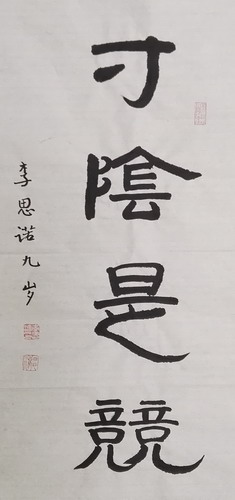 寸陰是競
李思诺九岁